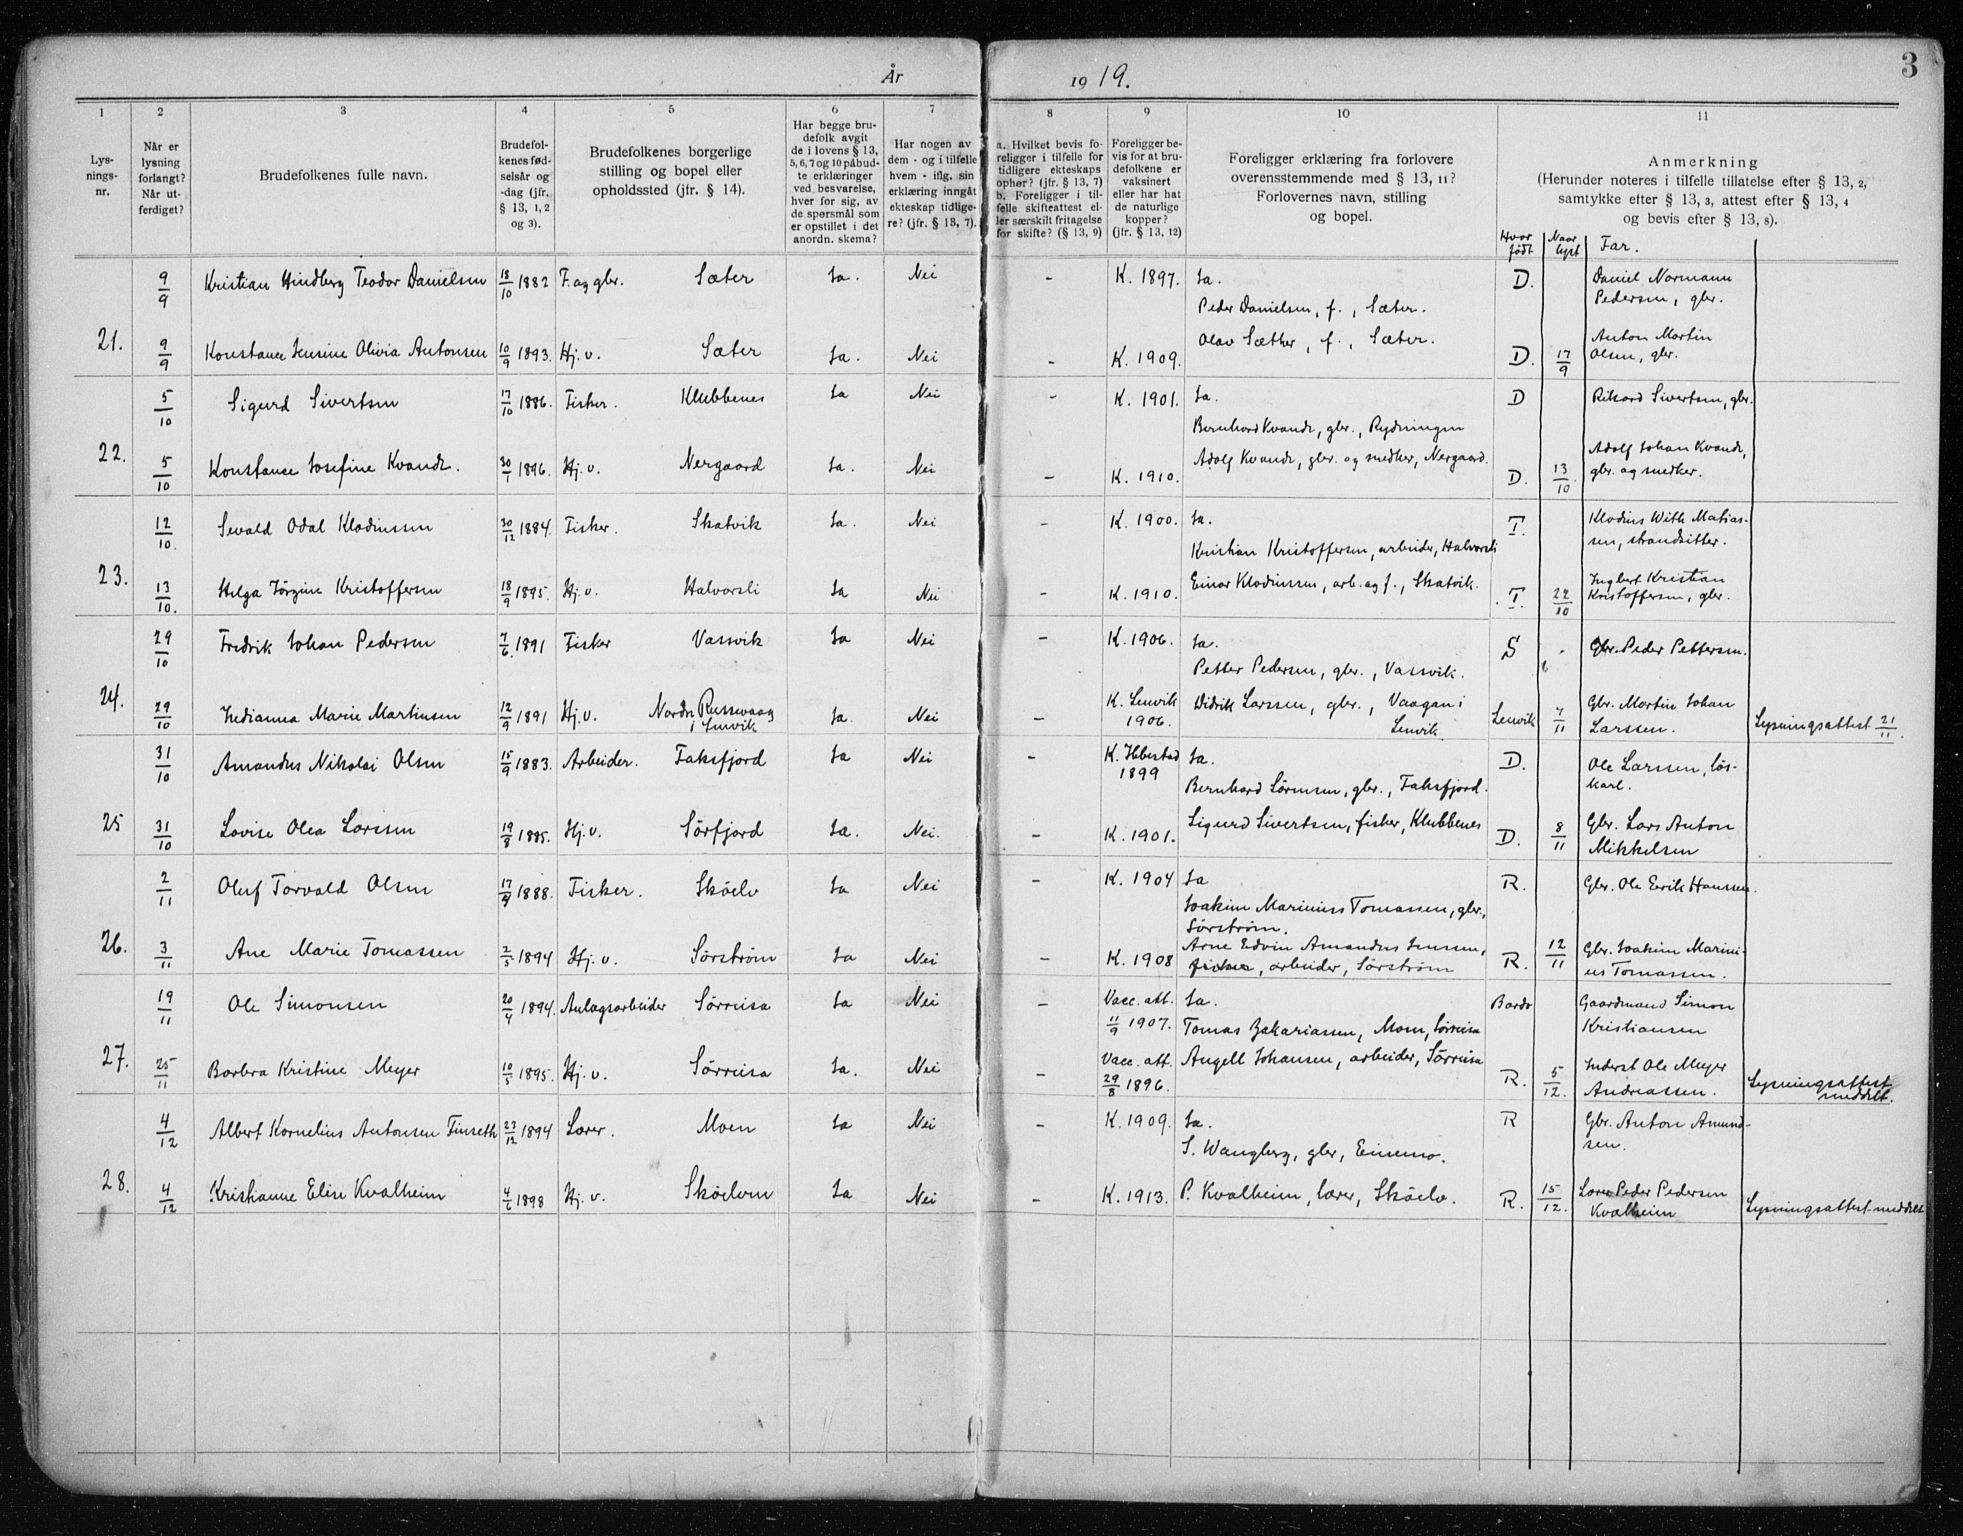 År 1919. 3
1 2 3 4 5 6 7 8 9 10 11
Lys-
nings-
nr.
Når er
lysning
forlangt?
Når ut-
ferdiget?
Brudefolkenes fulle navn.
Brudefol-
kenes fød-
selsår og
-dag (jfr.
§ 13, 1, 2
og 3).
Brudefolkenes borgerlige
stilling og bopel eller
opholdssted (jfr. § 14).
Har begge bru-
defolk avgit
de i lovens § 13,
5, 6, 7 og 10 påbud-
te erklæringer
ved besvarelse,
hver for sig, av
de spørsmål som
er opstillet i det
anordn. skema?
Har nogen av
dem - og i tilfelle
hvem - iflg. sin
erklæring inngåt
ekteskap tidlige-
re? (jfr. § 13, 7).
a. Hvilket bevis fo-
religger i tilfelle for
tidligere ekteskaps
ophør? (jfr. § 13, 7)
b. Foreligger i til-
felle skifteattest el-
ler særskilt fritagelse
for skifte? (§ 13, 9)
Foreligger be-
vis for at bru-
defolkene er
vaksinert
eller har hat
de naturlige
kopper?
(jfr. § 13, 12)
Foreligger erklæring fra forlovere
overensstemmende med § 13, 11?
Forlovernes navn, stilling
og bopel.
Anmerkning
(Herunder noteres i tilfelle tillatelse efter § 13, 2,
samtykke efter § 13, 3, attest efter § 13, 4
og bevis efter § 13, 8).
Hvor født Naar lyst Far.
9/9 Kristian Hindberg Teodor Danielsen 18/10 1882 F. og gbr. Sæter Ja. Nei - K. 1897. Ja. D. Daniel Normann
Peder Danielsen, f., Sæter. Pedersen, gbr.
Olav Sæther, f., Sæter. Anton Martin
21. 9/9 Konstance Jensine Olivia Antonsen 10/9 1893. Hj. v. Sæter Ja. Nei - K. 1909. D. 17/9 Olsen, gbr.
5/10 Sigurd Sivertsen 17/10 1886. Fisker. Klubbenes Ja Nei - K. 1901. Ja. D Rikard Sivertsen, gbr.
Bernhard Kvandt, gbr., Rydningen
Adolf Johan Kvandt,
22. 5/10 Konstance Josefine Kvandt. 30/1 1896. Hj. v. Nergaard Ja. Nei - K. 1910. Adolf Kvandt, gbr. og snedker, Nergaard. D. 13/10 gbr. og snedker.
12/10. Sevald Odal Klodiussen 30/12 1884. Fisker. Skatvik Ja. Nei - K. 1900. Ja. T. Klodius With Matias-
sen, strandsitter.
Kristian Kristoffersen, arbeider, Halvorsli
23. 13/10. Helga Jörgine Kristoffersen 18/9 1895. Hj. v. Halvorsli Ja Nei - K. 1910. Einar Klodiussen, arb. og f., Skatvik. T. 22/10 Ingbert Kristian
Kristoffersen, gbr.
29/10 Fredrik Johan Pedersen 7/6. 1891 Fisker Vassvik Ja Nei - K. 1906. Ja. S Gbr. Peder Pettersen.
Petter Pedersen, gbr., Vassvik.
24. 29/10 Indianna Marie Martinsen 12/9 1891 Hj. v. Nordre Russevaag
i Lenvik Ja. Nei - K. Lenvik
1906. Didrik Larssen, gbr., Vaagan i
Lenvik. Lenvik 7/11 Gbr. Martin Johan
Larssen. Lysningsattest 21/11.
31/10 Amandus Nikolai Olsen 15/9 1883. Arbeider. Faksfjord Ja Nei - K. Ibbestad
1899 Ja. D. Ole Larssen, lös-
karl.
Bernhard Sörensen, gbr., Faksfjord.
25 31/10 Lovise Olea Larssen 19/8 1885. Hj. v. Sörfjord Ja. Nei. - K. 1901. Sigurd Sivertsen, fisker, Klubbenes D. 8/11 Gbr. Lars Anton
Mikkelsen
2/11 Oluf Torvald Olsen 17/4 1888. Fisker. Sköelv Ja Nei - K. 1904 Ja R. Gbr. Ole Eerik Hanssen.
Joakim Marinius Tomassen, gbr.,
Sörström.
26. 3/11 Ane Marie Tomassen 2/5 1894 Hj. v. Sörström Ja Nei - K. 1908 Arne Edvin Amandus Jenssen,
fisker, arbeider, Sörström R. 12/11 Gbr. Joakim Marini-
us Tomassen.
19/11 Ole Simonsen 20/4 1894. Anlagsarbeider Sörreisa Ja Nei - Vacc. att.
11/9 1907. Ja. Bardo Gaardmand Simon
Kristiansen
Tomas Zakariassen, Mom, Sörreisa
27. 25/11 Barbra Kristine Meyer 10/5 1895. Hj. v. Sörreisa Ja. Nei - Vacc. att.
29/8 1896. Angell Johansen, arbeider, Sörreisa R. 5/12 Inderst Ole Meyer
Andreassen. Lysningsattest
meddelt.
4/12 Albert Kornelius Antonsen Finseth 23/12 1894 Lærer. Moen Ja Nei - K. 1909. Ja. R Gbr. Anton Amund-
sen.
S. Wangberg, gbr, Einemo.
28. 4/12 Kristianne Elise Kvalheim 4/6 1898 Hj. v. Sköelven Ja Nei - K. 1913. P. Kvalheim, lærer, Sköelv. R. 15/12. Lærer Peder Pedersen
Kvalheim Lysningsattest meddelt